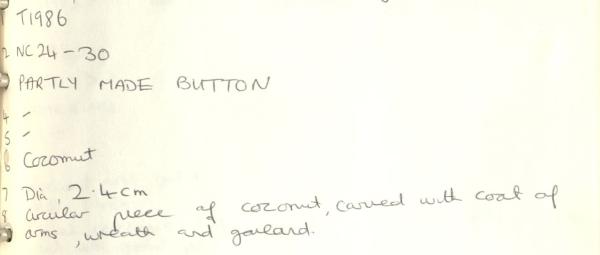 1 T1986
2 NC24-30
PARTLY MADE BUTTON
4 -
5 -
6 Cozonut
7 Dia, 2.4cm
8 circular piece of cozonut, carved with coat of
arms, wreath and garland.